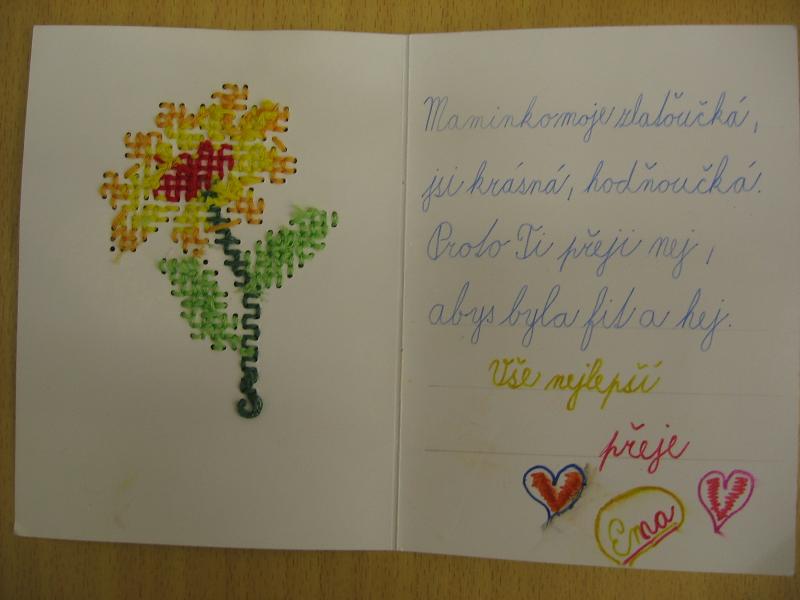 Maminko moje zlaťoučká,
jsi krásná, hodňoučká.
Proto Ti přeji nej,
abys byla fit a hej.
Vše nejlepší
přeje
Ema